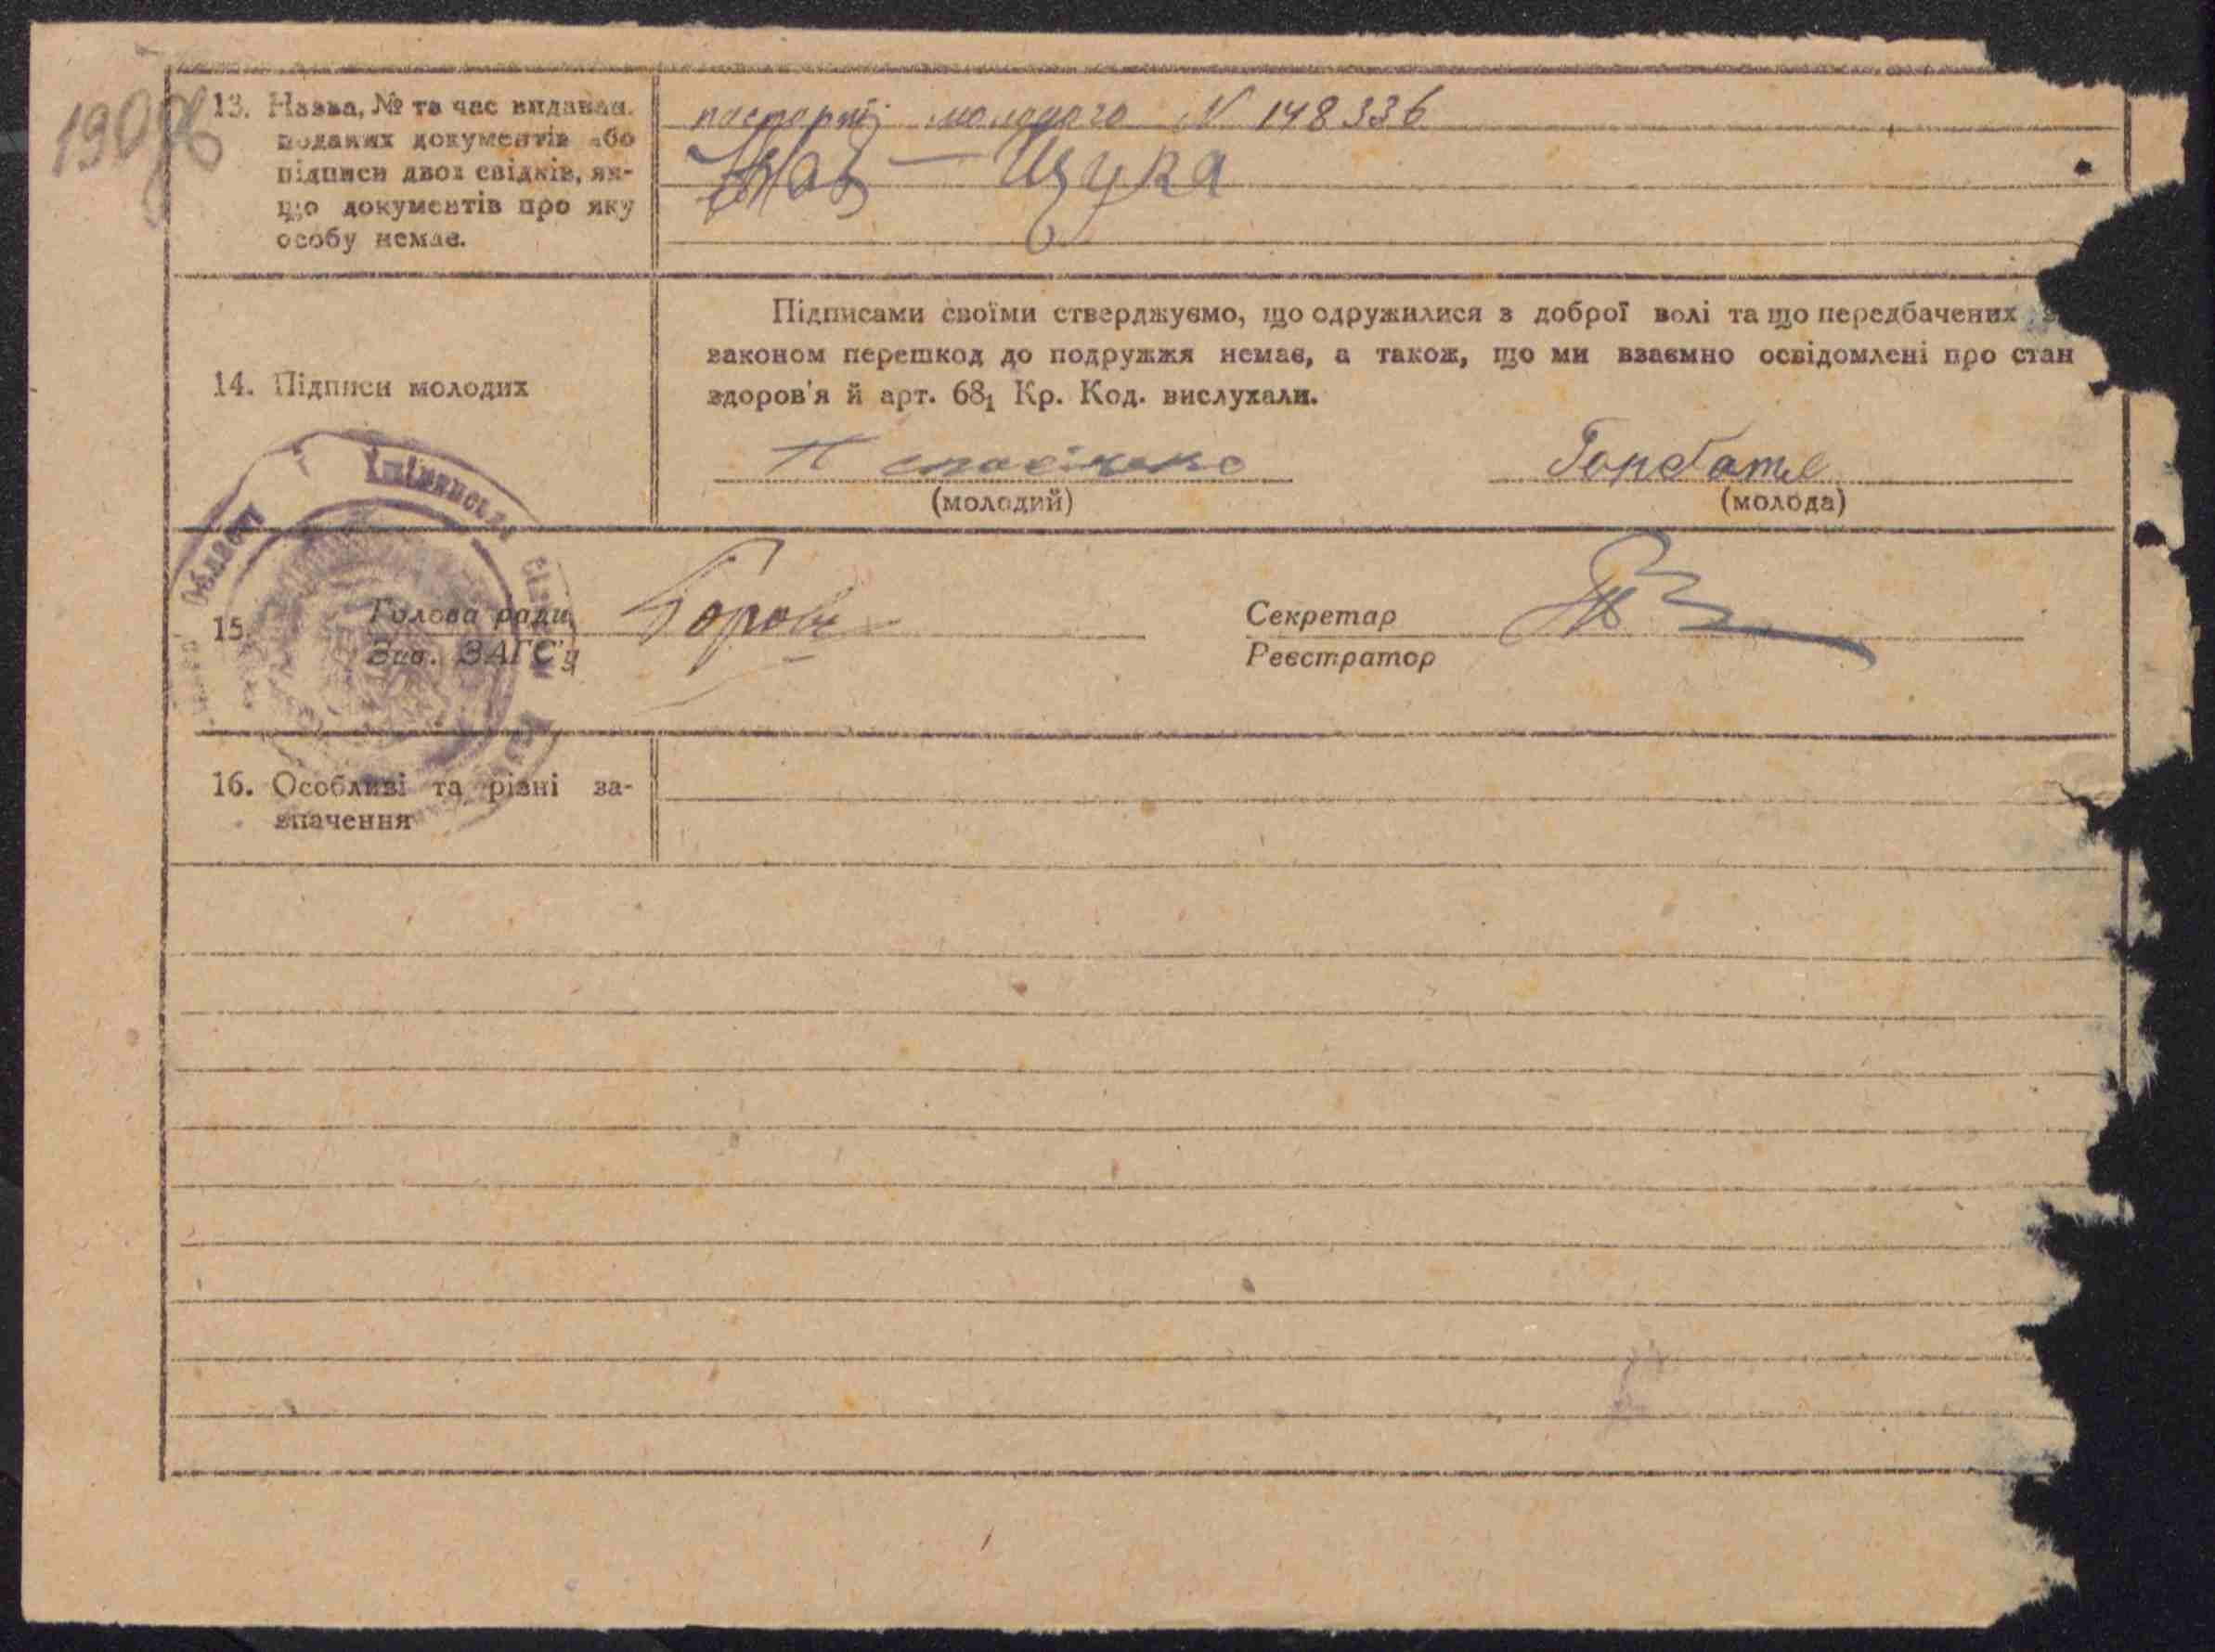 190
13. Назва, № та час видаван.
поданих документів або
підписи двох свідків, як-
що документів про яку
особу немає.
паспорт молодого N 148336
Щука
14. Підписи молодих
Підписами своїми стверджуємо, що одружилися з доброї волі та що передбачених
законом перешкод до подружжя немає, а також, що ми взаємно освідомлені про стан
здоров'я й арт. 68₁ Кр. Код. вислухали.
(молодий)
(молода)
15.
Голова ради
Зав. ЗАГС'у
Секретар
Реєстратор
16. Особливі та різні за-
значення